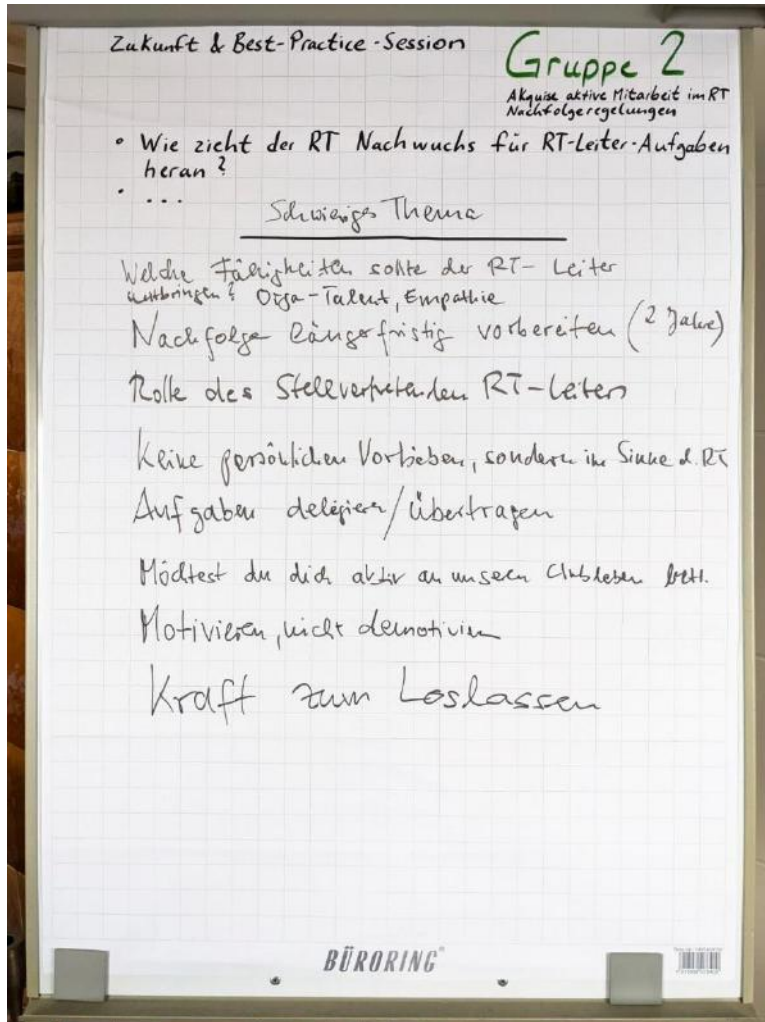 Zukunft & Best-Practice-Session
Gruppe 2
Akquise aktive Mitarbeit im RT
Nachfolgeregelungen
• Wie zieht der RT Nachwuchs für RT-Leiter-Aufgaben
heran?
• ...
Schwieriges Thema
Welche Fähigkeiten sollte der RT-Leiter
mitbringen? Orga-Talent, Empathie
Nachfolge längerfristig vorbereiten (2 Jahre)
Rolle des Stellvertretenden RT-Leiters
Keine persönlichen Vorlieben, sondern im Sinne d. RT
Aufgaben delegieren/übertragen
Möchtest du dich aktiv an unserem Clubleben betl.
Motivieren, nicht demotivieren
Kraft zum Loslassen
BÜRORING